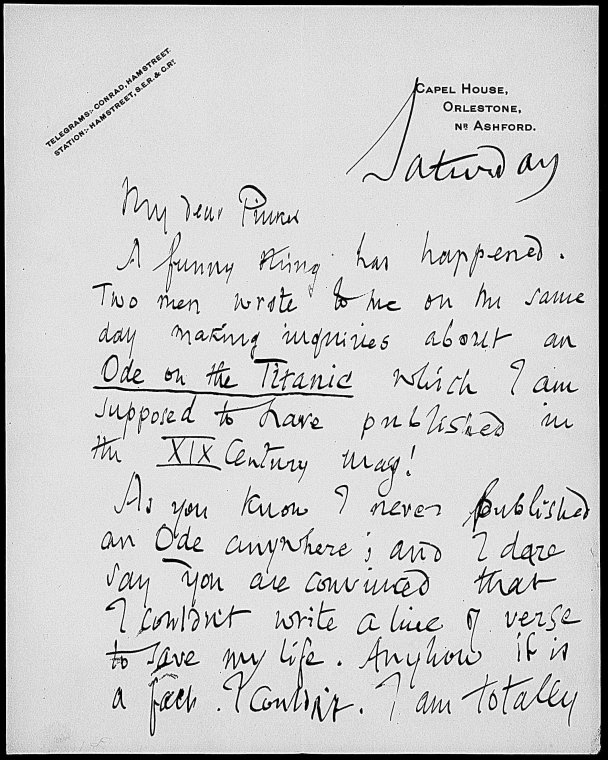 TELEGRAMS:- CONRAD, HAMSTREET.
STATION:- HAMSTREET, S.E.R. & C.RY.
CAPEL HOUSE,
ORLESTONE,
NR ASHFORD.
Saturday
My dear Pinker
A funny thing has happened.
Two men wrote to me on the same
day making inquiries about an
Ode on the Titanic which I am
supposed to have published in
the XIX Century mag!
As you know I never published
an Ode anywhere; and I dare
say you are convinced that
I couldn't write a line of verse
to save my life. Anyhow it is
a fact. I couldn't. I am totally